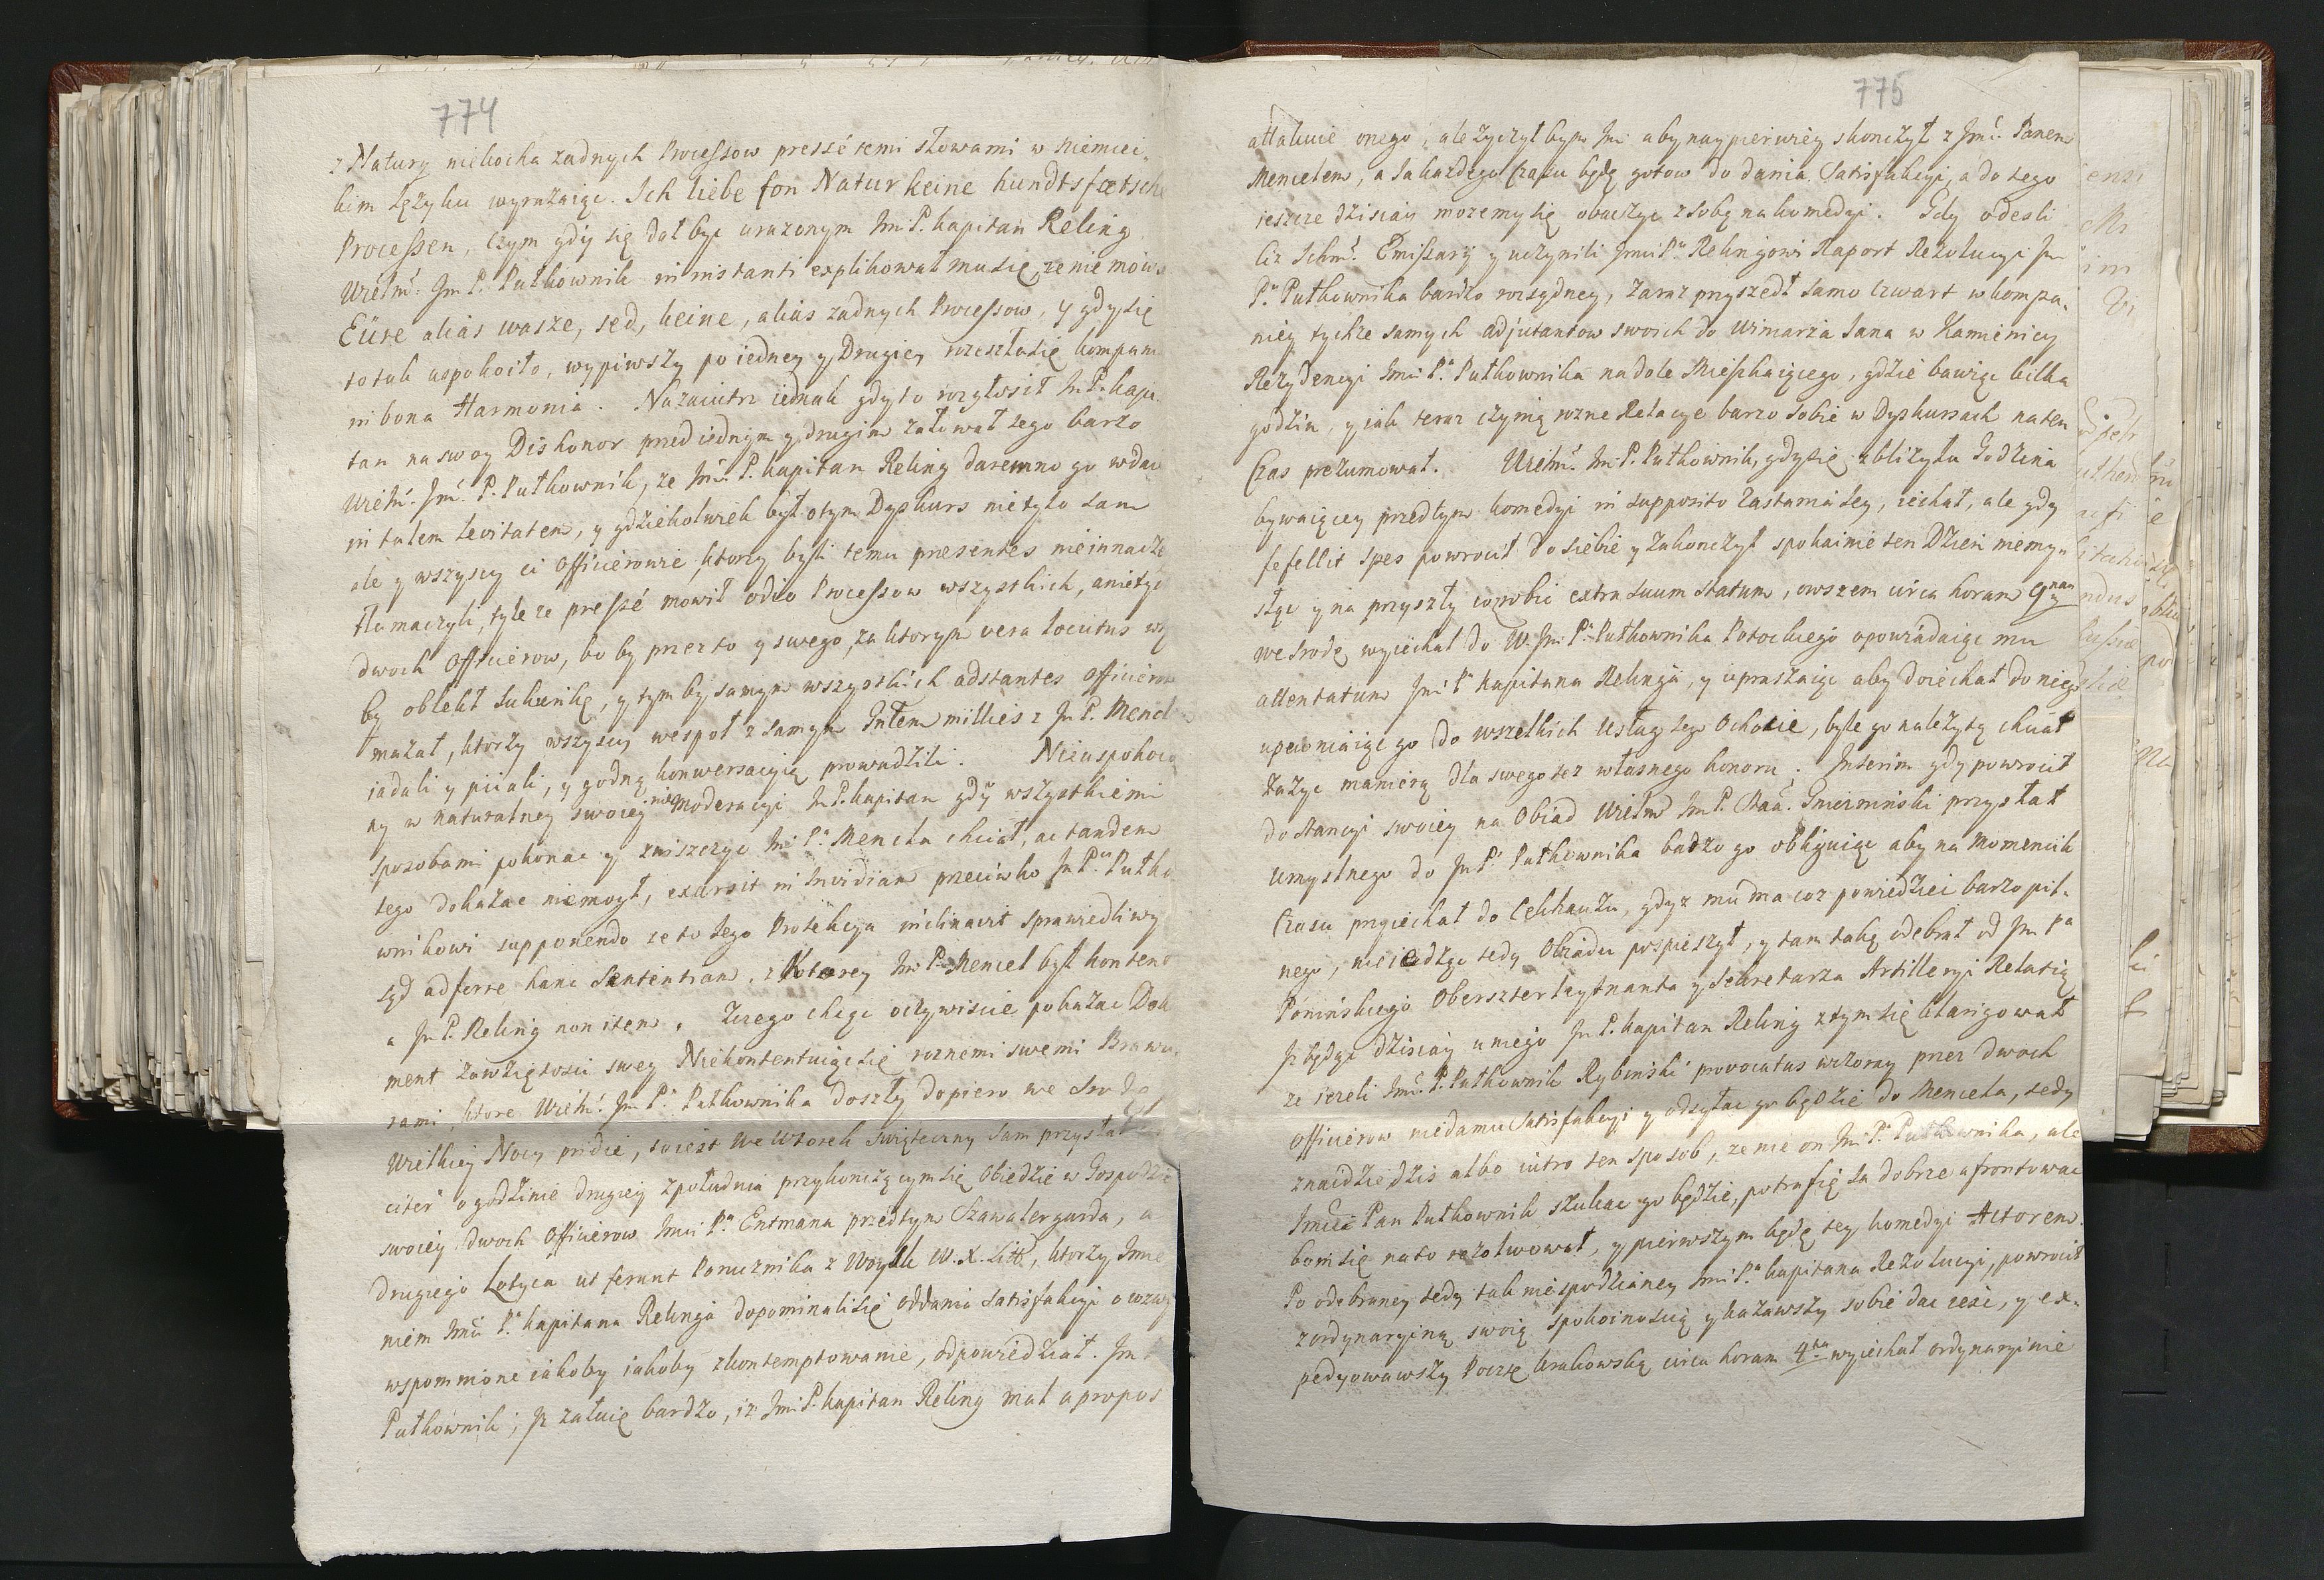 774
z Natury niekocha żadnych Processow pressé temi słowami w Niemiec-
kim Języku wyrażaiąc. Ich liebe fon Natur keine hundtsfœtsche
Processen, czym gdÿ się dał być urazonym Jm P. kapitan Reling
Wielm. Jm P. Pułkownik in instanti explikował mu się, że nie mowi
Eüre alias wasze, sed, keine, alias zadnych Processow, y gdy się
to tak uspokoiło, wypiwszy po iedney y drugiey rozeszła się kompania
in bona Harmonia. Nazaiutrz iednak gdy to rozgłosił Jm P. kapi-
tan na swoy Dishonor przed iednym y drugim żałował tego barzo
Wielm. Jm. P. Pułkownik, ze Jm. P. kapitan Reling daremno go wdaie
in talem levitatem, y gdziekolwiek był o tym Dyskurs nietylo sam
ale y wszyscy ci Officierowie, ktorzy byli temu presentes nieinaczey
tłumaczyli, tyle ze pressé mowił odio Processow wszystkich, anietyc
dwoch Officierow, bo by przez to y swego, za ktorym vera locutus
by oblekł sukienkę, y tym by samym wszystkich adstantes officierow
mazał, ktorzy wszyscy wespoł z samym millies z Jm P. Mencl
iadali y piiali, y godną konwersacyią prowadzili. Nieuspokoio
ny w naturalney swoiey nie moderacyi Jm P. kapitan gdÿ wszystkiemi
sposobami pokonac y zniszczyc Jm P. Mencla chciał, ac tandem
tego dokazac niemogł, exarsit in Invidiam przeciwko Jm Pu Pułko
wnikowi supponendo ze to Jego Protekcya inclinavit sprawiedliwy
sąd adferre hanc Sententiam, z Ktorey Jm P. Mencel był kontent
a Jm P. Reling non item. Czego chcąc oczywiscie pokazac Doku
ment zawziętosci swey Niekontentuiąc się roznemi swemi Brawu-
rami, ktore Wielm. Jm Pa Pułkownika doszły dopiero we Srodę
Wielkiey Nocy pridie, to iest we Wtorek swiąteczny sam przysłał
citer o godzinie drugiey z południa przykonczącym się Obiedzie w Gospodzie
swoiey dwoch Officierow Jmci Pa Entmana przedtym Szawalergarda, a
drugiego Łotyca ut ferunt Porucznika z Woyska W. X. Litt, ktorzy Jmie
niem Jmci Pa kapitana Relinga dopominali się oddania satisfakcyi o wzwy
wspomnione iakoby iakoby zkontemptowanie, odpowiedział. Jm P
Pułkownik; Ja załuię bardzo, iz Jm P. kapitan Reling mał apropos
775
attakuie onego, ale życzył bym Jm aby naypierwiey skonczył z Jmć. Panem
Menclem, a Ja kazdego czasu będę gotow do dania Satisfakcyi, a do tego
ieszcze dzisiay mozemy się obaczyc z sobą na komedyi. Gdy odesli
ciz Ichm. Emissarÿ y uczynili Jmci Pu Relingowi Raport Rezolucyi Jm
Pa Pułkownika bardzo rozsądney, zaraz przyszedł samo czwart w kompa-
niey tychze samych adjutantow swoich do Winiarza Jana w Kamienicy
Rezydencyi Jmci Pa Pułkownika na dole Mieszkaiącego, gdzie bawiąc kilka
godzin, y iak teraz czynią rozne Relacye barzo sobie w Dyskursach na ten
Czas prezumował. Wielm. Jm P. Pułkownik, gdy się zbliżyła Godzina
bywaiącey przedtym komedyi in supposito zastania Jey, iechał, ale gdy
fefellit spes powrocił do siebie y zakonczył spokoinie ten Dzien niemy-
sląc y na przyszły co robic extra suum statum, owszem circa horam 9nam
we Srodę wyiechał do W. Jm Pa Pułkownika Potockiego opowiadaiąc mu
attentatum Jmci Pa Kapitana Relinga, y upraszaiąc aby doiechał do niego
upewniaiąc go do wszelkich usług Jego Ochocie, byle go nalezytą chciał
zażyc manierą dla swego tez własnego honoru. Interim gdy powrocił
do stancyi swoiey na Obiad Wielm Jm P. Smiernińśki przysłał
umyslnego do Jm Pa Pułkownika badzo go obliguiąc aby na momencik
czasu przyiechał do Cekhauzu, gdyz mu ma coz powiedziec barzo pil-
nego, nie iedząc tedy Obiadu pospieszył, y tam takę odebrał od Jm Pa
Ponińskiego Oberszterleytnanta y Sekretarza Artilleryi Relatią
Jz będąc dzisiay u niego Jm P. kapitan Reling z tym się klarigował
ze iezeli Jmć. P. Pułkownik Rybiński provocatus wczoray przez dwoch
Officierow nieda mu Satisfakcyi y odsyłac go będzie do Mencla, tedy
znaidzie dzis albo iutro ten sposob, ze nie on Jm Pa Pułkownika, ale
Jmci Pan Pułkownik szukac go będzie, potrafię Ja dobrze afrontowac
bom się na to rezolwował, y pierwszym będę tey komedyi Actorem.
Po odebraney tedy tak niespodzianey Jmci Pa kapitana Rezolucyi, powrocił
z ordynaryiną swoią spokoinoscią y kazawszy sobie dac iesc, y ex-
pedyowawszy Pocztę krakowską circa horam 4ta wyiechał ordynaryinie